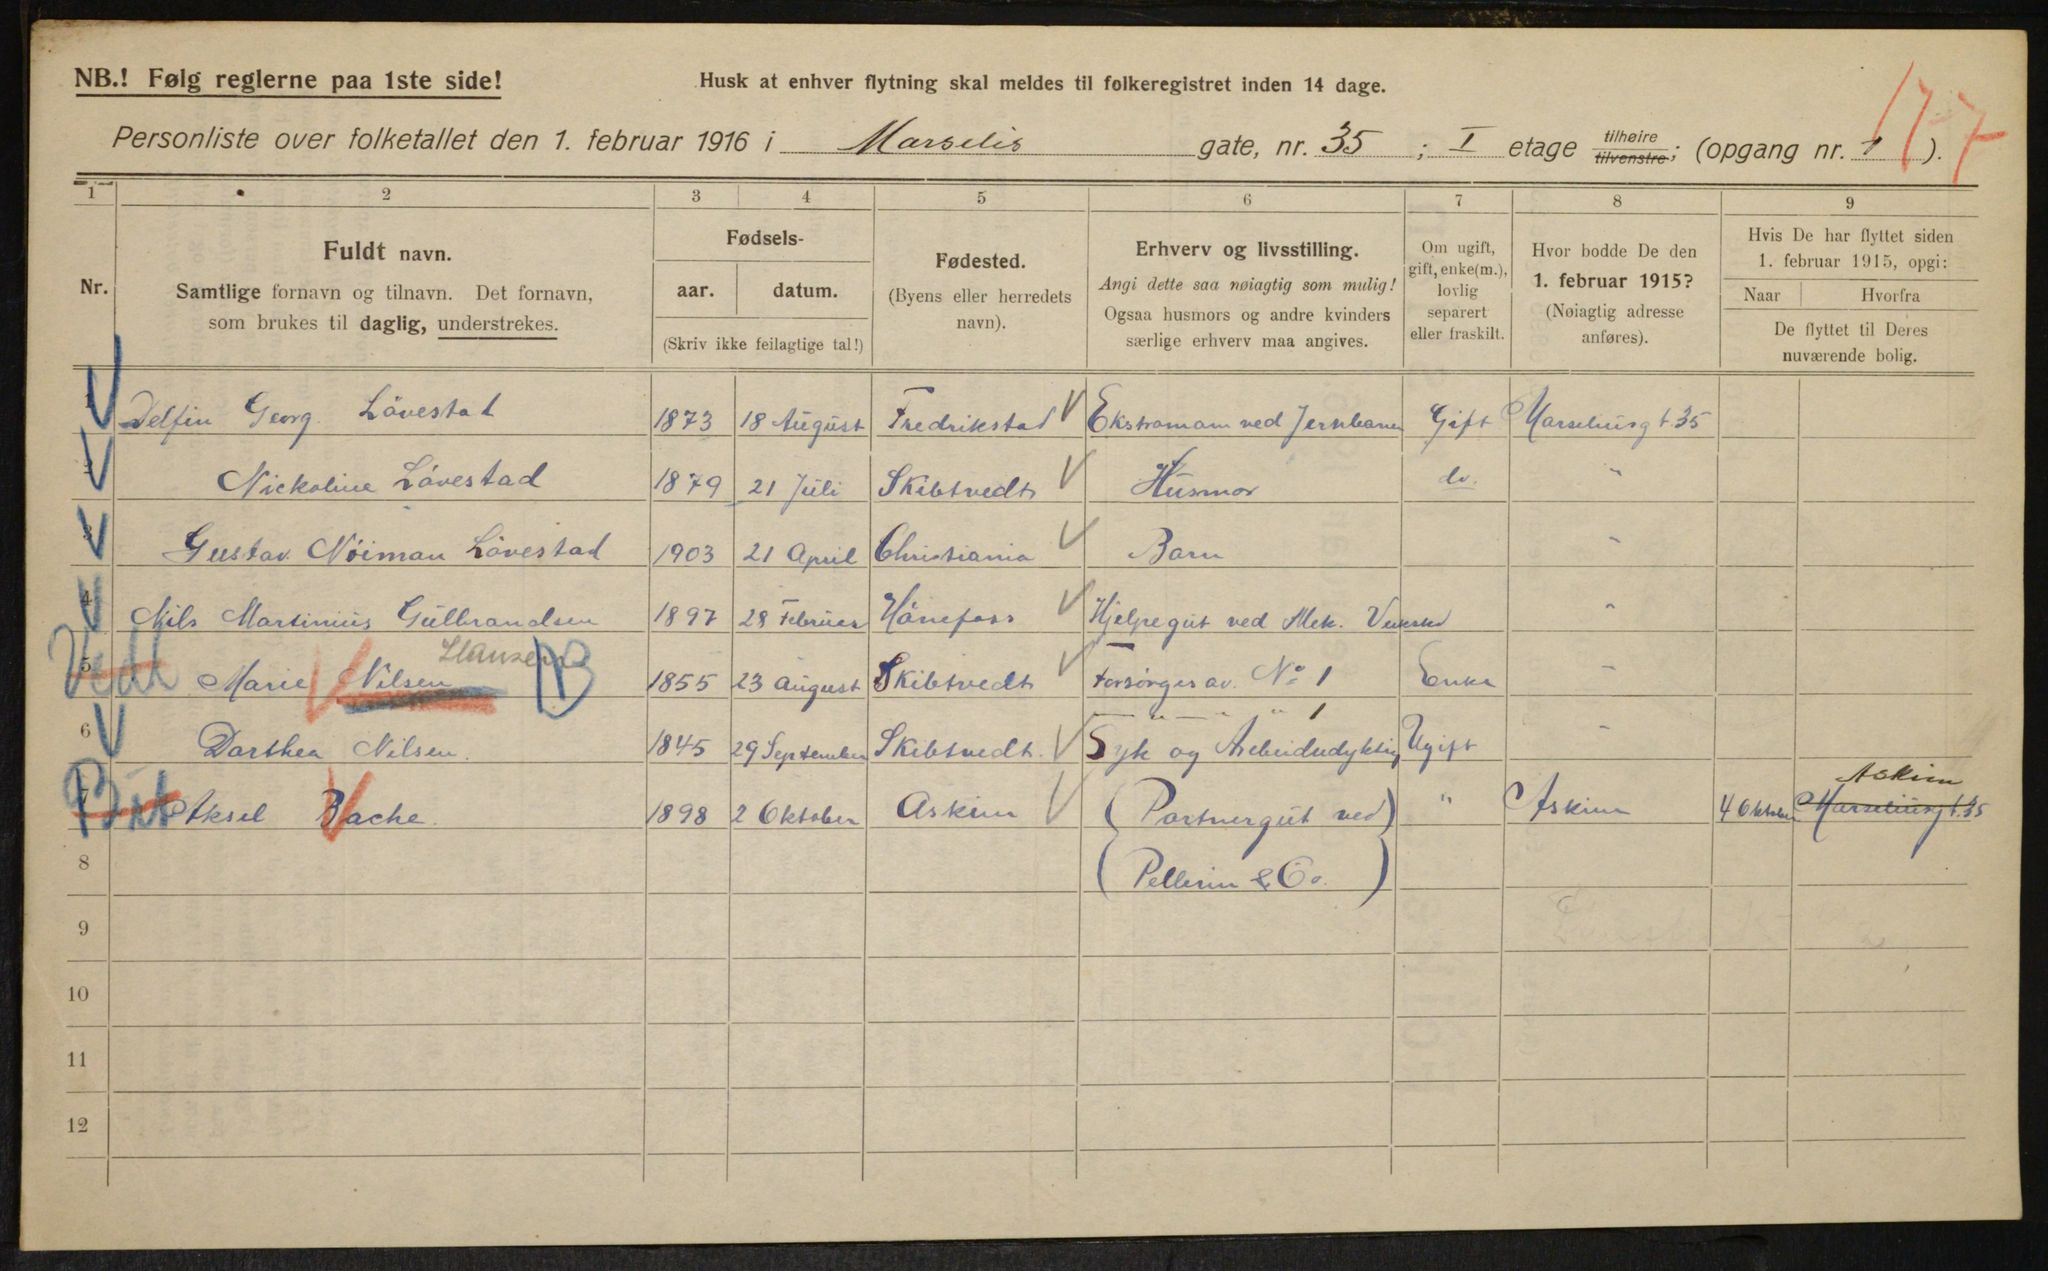 NB.! Følg reglerne paa 1ste side!
Husk at enhver flytning skal meldes til folkeregistret inden 14 dage.
177
Personliste over folketallet den 1. februar 1916 i Marselis gate, nr. 35 ; I etage tilhøire tilvenstre; (opgang nr. 1 ).
1 2 3 4 5 6 7 8 9
Nr.
Fuldt navn.
Samtlige fornavn og tilnavn. Det fornavn,
som brukes til daglig, understrekes.
Fødsels-
aar. datum.
(Skriv ikke feilagtige tal!)
Fødested.
(Byens eller herredets
navn).
Erhverv og livsstilling.
Angi dette saa nøiagtig som mulig!
Ogsaa husmors og andre kvinders
særlige erhverv maa angives.
Om ugift,
gift, enke(m.),
lovlig
separert
eller fraskilt.
Hvor bodde De den
1. februar 1915?
(Nøiagtig adresse
anføres).
Hvis De har flyttet siden
1. februar 1915, opgi:
Naar Hvorfra
De flyttet til Deres
nuværende bolig.
Delfin Georg Lövestad 1873 18 August Fredrikstad Ekstramann ved Jernbanen Gift Marseliusgt. 35
Nickoline Lövestad 1879 21 Juli Skibtvedt Husmor do. "
Gustav Nöiman Lövestad 1903 21 April Christiania Barn "
4 Nils Martinius Gulbrandsen 1897 28 Februar Hönefoss Hjelpegut ved Mek. "
Hansen
5 Marie Nilsen 1855 23 August Skibtvedt Forsörges av. No 1 Enke "
" " 1
6 Dorthea Nilsen. 1845 29 September Skibtvedt. Syk og Arbeidsudyktig Ugift "
Askim
7 Aksel Bache. 1898 2 Oktober Askim (Partnergut ved) " Askim 4 Oktober Marseliusgt. 35
8 (Pellerin & Co.)
9
10
11
12